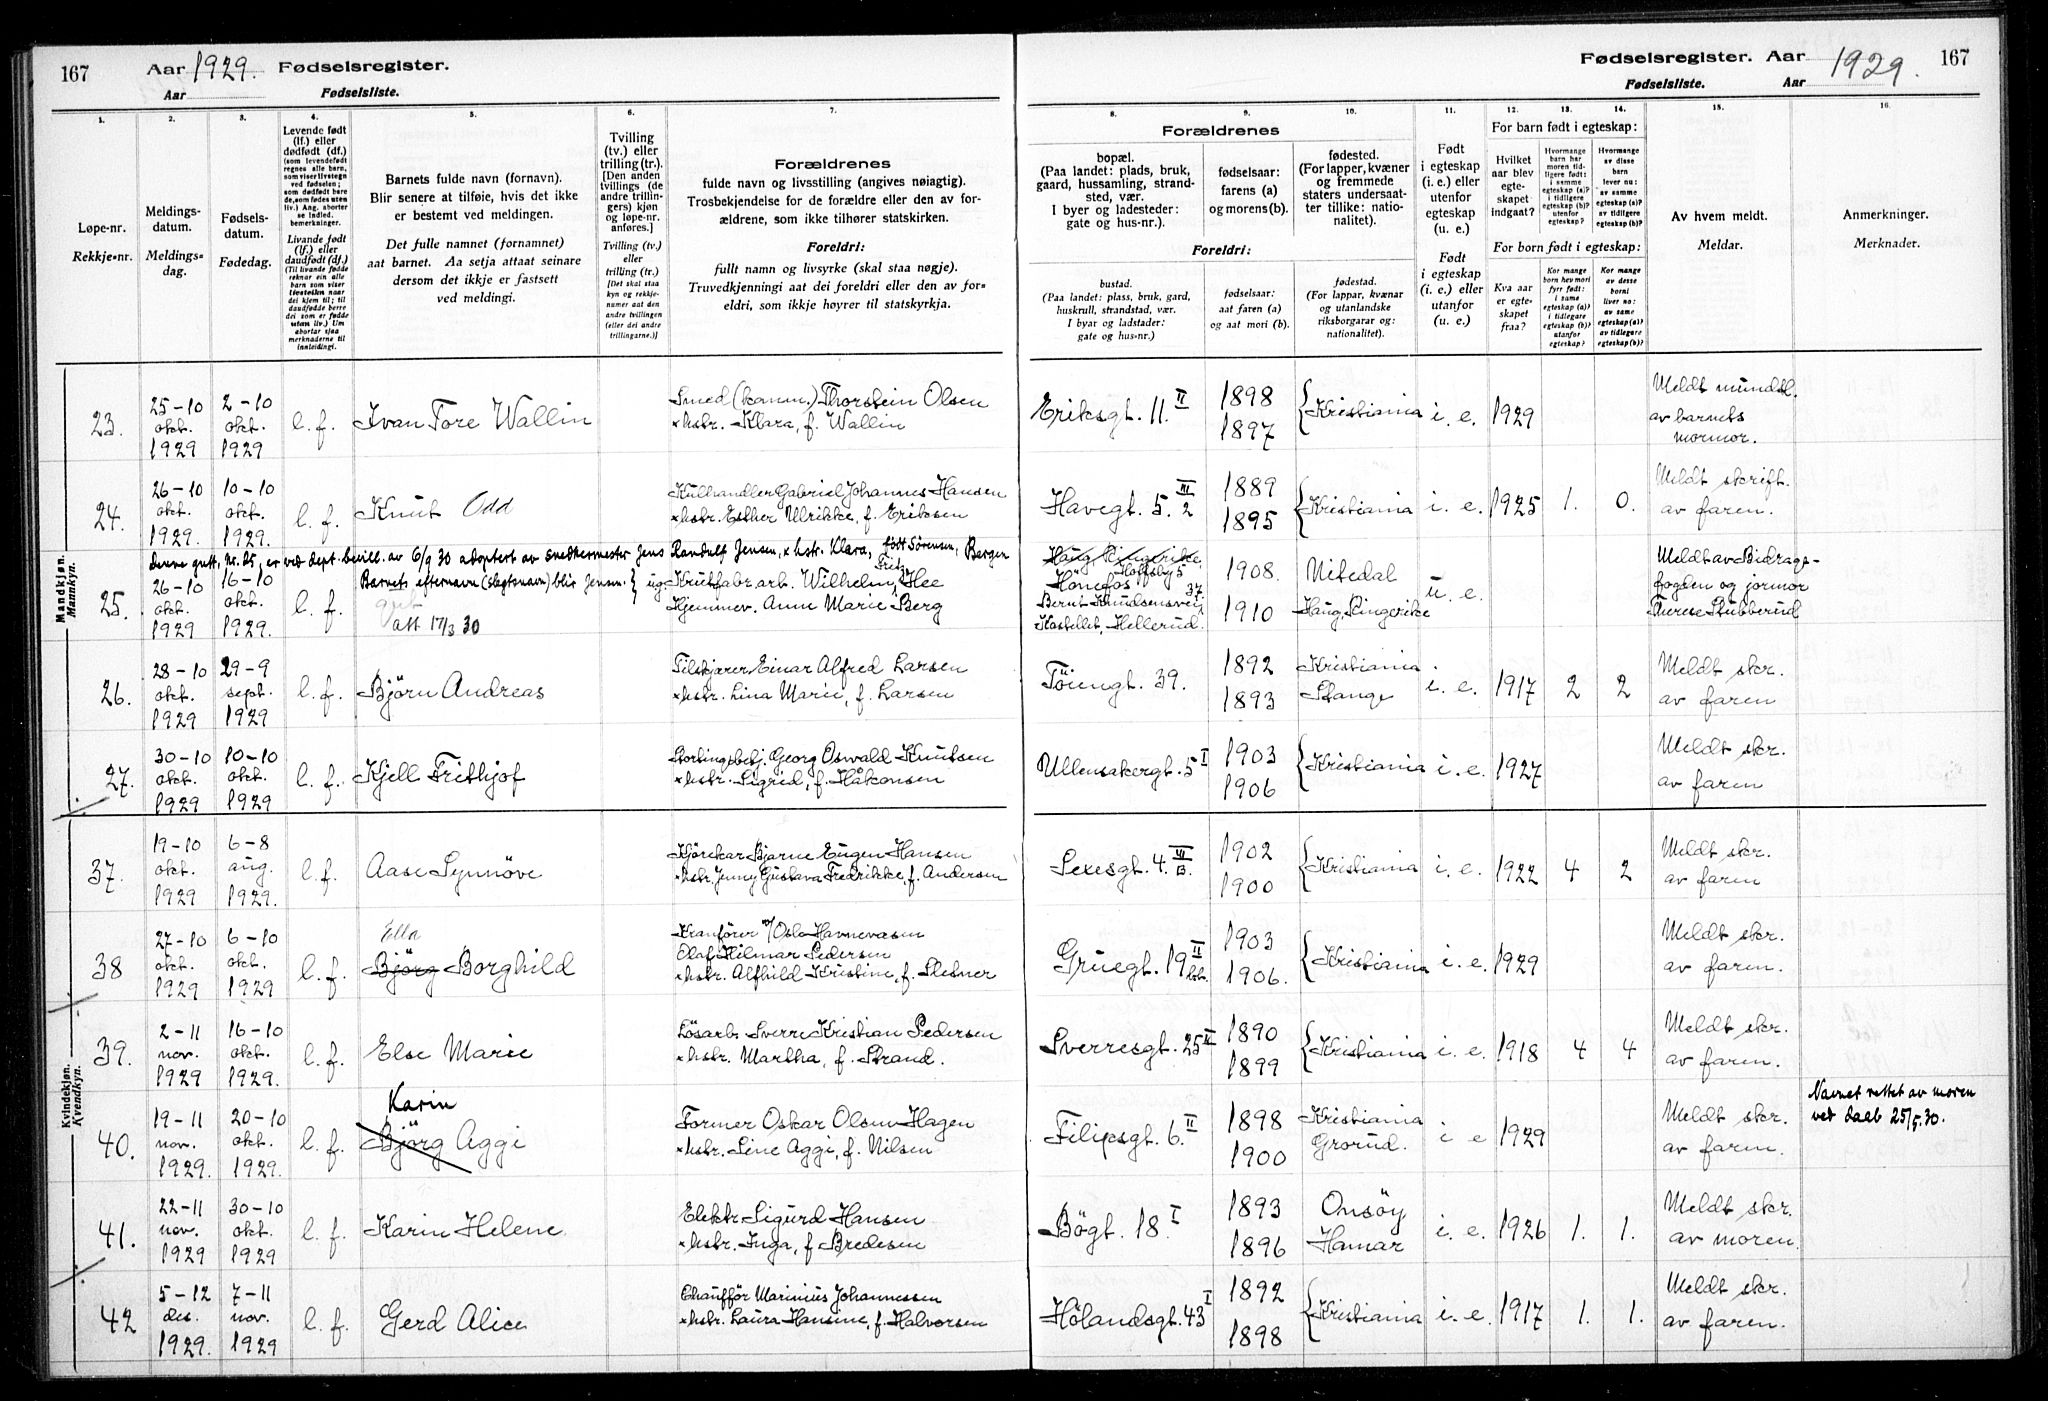 167 Aar 1929. Fødselsregister.
Aar Fødselsliste.
Fødselsregister. Aar 1929. 167
Fødselsliste. Aar
1. 2. 3. 4. 5. 6. 7.
Løpe-nr.
Rekkje-nr.
Meldings-
datum.
Meldings-
dag.
Fødsels-
datum.
Fødedag.
Levende født
(lf.) eller
dødfødt (df.)
(som levendefødt
regnes alle barn,
som viser livstegn
ved fødselen;
som dødfødt bare
de, som fødes uten
liv.) Ang. aborter
se indled.
bemerkninger.
Livande født
(lf.) eller
daudfødt (df.)
(Til livande fødde
reknar ein alle
barn som viser
livsteikn naar
dei kjem til; til
daudfødde berre
dei som er fødde
utan liv.) Um
abortar sjaa
merknaderne til
innleidingi.
Barnets fulde navn (fornavn).
Blir senere at tilføie, hvis det ikke
er bestemt ved meldingen.
Det fulle namnet (fornamnet)
aat barnet. Aa setja attaat seinare
dersom det ikkje er fastsett
ved meldingi.
Tvilling
(tv.) eller
trilling (tr.).
[Den anden
tvillings (de
andre trillin-
gers) kjøn
og løpe-nr.
anføres.]
Tvilling (tv.)
eller
trilling (tr.)
[Det skal staa
kyn og rekkje-
numer aat den
andre tvillingen
(eller dei andre
trillingarne.)]
Forældrenes
fulde navn og livsstilling (angives nøiagtig).
Trosbekjendelse for de forældre eller den av for-
ældrene, som ikke tilhører statskirken.
Foreldri:
fullt namn og livsyrke (skal staa nøgje).
Truvedkjenningi aat dei foreldri eller den av for-
eldri, som ikkje høyrer til statskyrkja.
8. 9. 10. 11. 12. 13. 14. 15. 16.
Forældrenes
bopæl.
(Paa landet: plads, bruk,
gaard, hussamling, strand-
sted, vær.
I byer og ladesteder:
gate og hus-nr.).
fødselsaar:
farens (a)
og morens (b).
fødested.
(For lapper, kvæner
og fremmede
staters undersaat-
ter tillike: natio-
nalitet).
Foreldri:
bustad.
(Paa landet: plass, bruk, gard,
huskrull, strandstad, vær.
I byar og ladstader:
gate og hus-nr.)
fødselsaar:
aat faren (a)
og aat mori (b).
fødestad.
(For lappar, kvænar
og utanlandske
riksborgarar og:
nationalitet).
Født
i egteskap
(i. e.) eller
utenfor
egteskap
(u. e.)
Født
i egteskap
(i. e.) eller
utanfor
(u. e.)
For barn født i egteskap:
Hvilket
aar blev
egte-
skapet
indgaat?
Hvormange
barn har
moren tid-
ligere født:
i samme
egteskap (a)?
i tidligere
egteskap (b)?
utenfor
egteskap?
Hvormange
av disse
barn
lever nu:
av samme
egteskap (a)?
av tidligere
egteskap (b)?
For born født i egteskap:
Kva aar
er egte-
skapet
fraa?
Kor mange
born hev mori
fyrr født:
i same
egteskap (a)?
i tidlegare
egteskap (b)?
utanfor
egteskap?
Kor mange
av desse
borni
liver no:
av same
egteskap (a)?
av tidlegare
egteskap (b)?
Av hvem meldt.
Meldar.
Anmerkninger.
Merknader.
Mandkjøn.
Mannkyn.
23. 25-10 okt. 1929 2-10 okt. 1929 l. f. Ivan Tore Wallin
Smed (komm.) Thorstein Olsen
x hstr. Klara, f. Wallin
Eriksgt. 11. II 1898 1897 {Kristiania i. e. 1929
Meldt mundtl.
av barnets
mormor.
24. 26-10 okt. 1929. 10-10 okt. 1929. l. f. Knut Odd
Kulhandler Gabriel Johannes Hansen
x hstr. Esther Ulrikke, f. Eriksen
Havegt. 5. III 2 1889 1895 {Kristiania i. e. 1925 1. 0.
Meldt skriftl.
av faren.
Denne gutt, nr. 25, er ved dept. bevill. av 6/9 30 adoptert av snedkermester Jens Randulf Jensen, x hstr. Klara, født Sörensen, Bergen
Barnets efternavn (slegtsnavn) blir Jensen. }
25. 26-10 okt. 1929 16-10 okt. 1929. l. f. gut
att 17/3 30
ug. Krutfabr. arb. Wilhelm Fritz Hee
Hjemmev. Anne Marie Berg
Haug, Ringerike
Hönefos Hoffsby 5
Bernt Knudsensvei 37.
Kastellet, Hellerud.
1908. 1910 Nitedal
Haug, Ringerike
u. e.
Meldt av Bidrags-
fogden og jormor
Therese Stubberud
26. 28-10 okt. 1929 29-9 sept. 1929 l. f. Bjørn Andreas
Tilskjærer Einar Alfred Larsen
x hstr. Lina Marie, f. Larsen
Töiengt. 39. 1892 1893 Kristiania
Stange
i. e. 1917 2 2
Meldt skr.
av faren
27. 30-10 okt. 1929 10-10 okt. 1929 l. f. Kjell Frithjof
Stortingsbetj. Georg Oswald Knutsen
x hstr. Sigrid, f. Håkonsen
Ullensakergt. 5 I 1903 1906 {Kristiania i. e. 1927
Meldt skr.
av faren
Kvindekjøn.
Kvendkyn.
37. 19-10 okt. 1929 6-8 aug. 1929. l. f. Aase Synnöve
Kjörekar Bjarne Eugen Hansen
x hstr. Jenny Gustava Fredrikke, f. Andersen
Sexesgt. 4. VI B. 1902 1900 {Kristiania i. e. 1922 4 2
Meldt skr.
av faren
38 27-10 okt. 1929 6-10 okt. 1929 l. f. Ella
Björg Borghild
Kranförer v/ Oslo Havnevæsen
Olaf Hilmar Pedersen
x hstr. Alfhild Kristine, f. Slesner
Gruegt. 19 II 1903 1906. {Kristiania i. e. 1929
Meldt skr.
av faren.
39. 2-11 nov. 1929 16-10 okt. 1929. l. f. Else Marie
Lösarb. Sverre Kristian Pedersen
x hstr. Martha, f. Strand.
Sverresgt. 25 II 1890 1899 {Kristiania i. e. 1918 4 4
Meldt skr.
av faren.
40. 19-11 nov. 1929. 20-10 okt. 1929. l. f. Karin
Björg Aggi
Former Oskar Olsen Hagen
x hstr. Line Aggi, f. Nilsen
Filipsgt. 6. II 1898 1900 Kristiania
Grorud.
i e 1929
Meldt skr.
av faren.
Navnet rettet av moren
ved daab 25/5. 30.
41. 22-11 nov. 1929 30-10 okt. 1929 l. f. Karin Helene
Elektr. Sigurd Hansen
x hstr. Inga, f Bredesen
Bögt. 18. I 1893 1896 Onsöy
Hamar
i. e. 1926 1. 1.
Meldt skr.
av moren.
42 5-12 des. 1929. 7-11 nov. 1929 l. f. Gerd Alice
Chaufför Marinius Johannessen
x hstr. Laura Hansine, f. Halvorsen
Hölandsgt. 43 I 1892 1898 {Kristiania i. e. 1917 1. 1.
Meldt skr.
av faren.